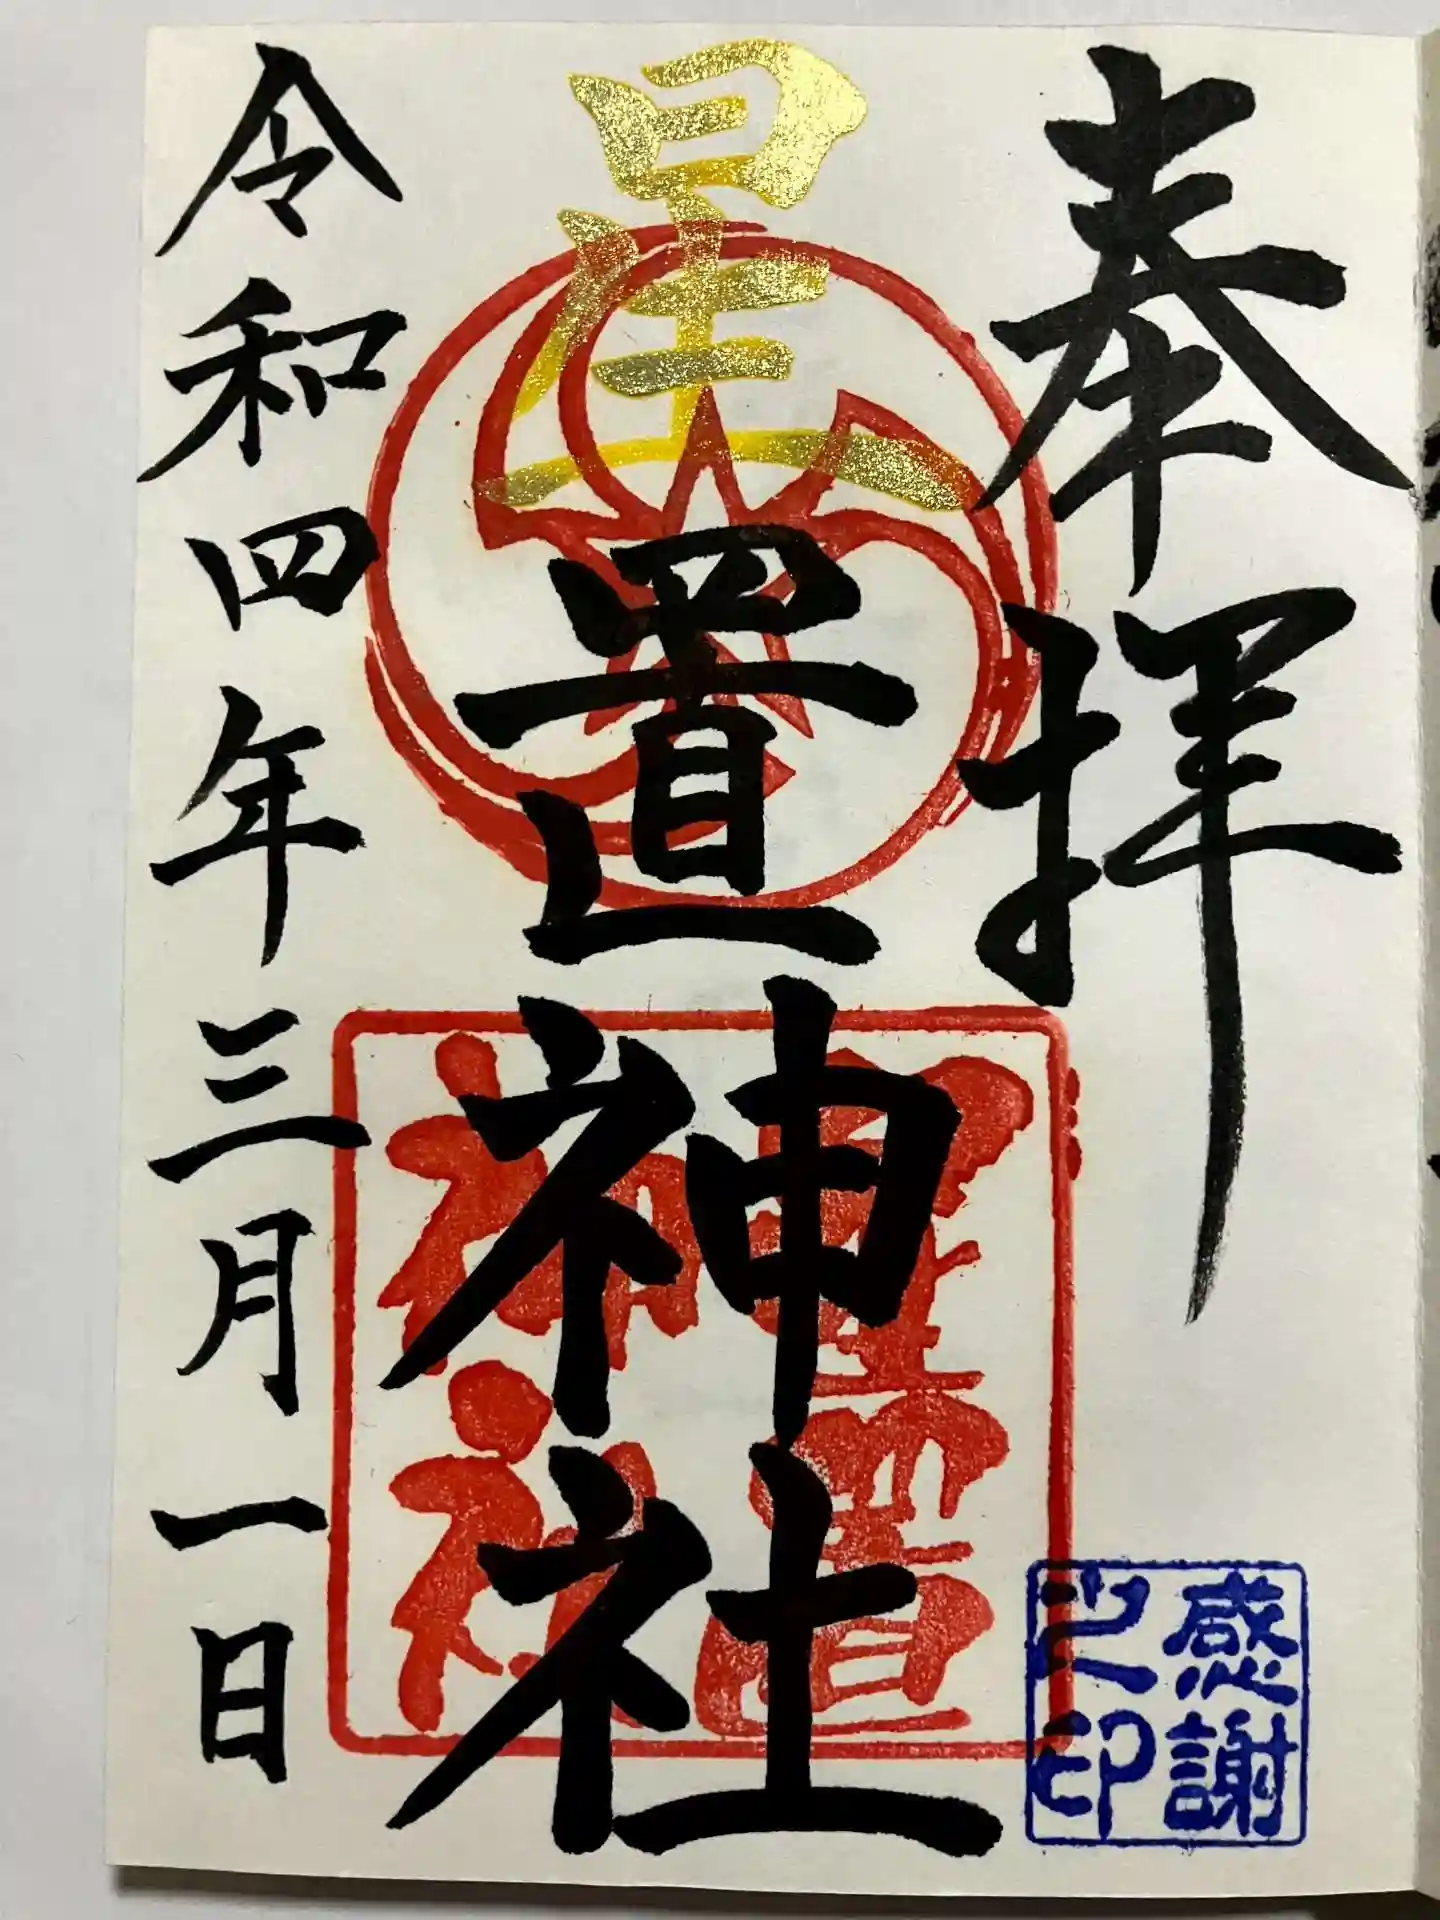 奉拝
星置神社
星置
神社
令和四年三月一日
感謝
之印